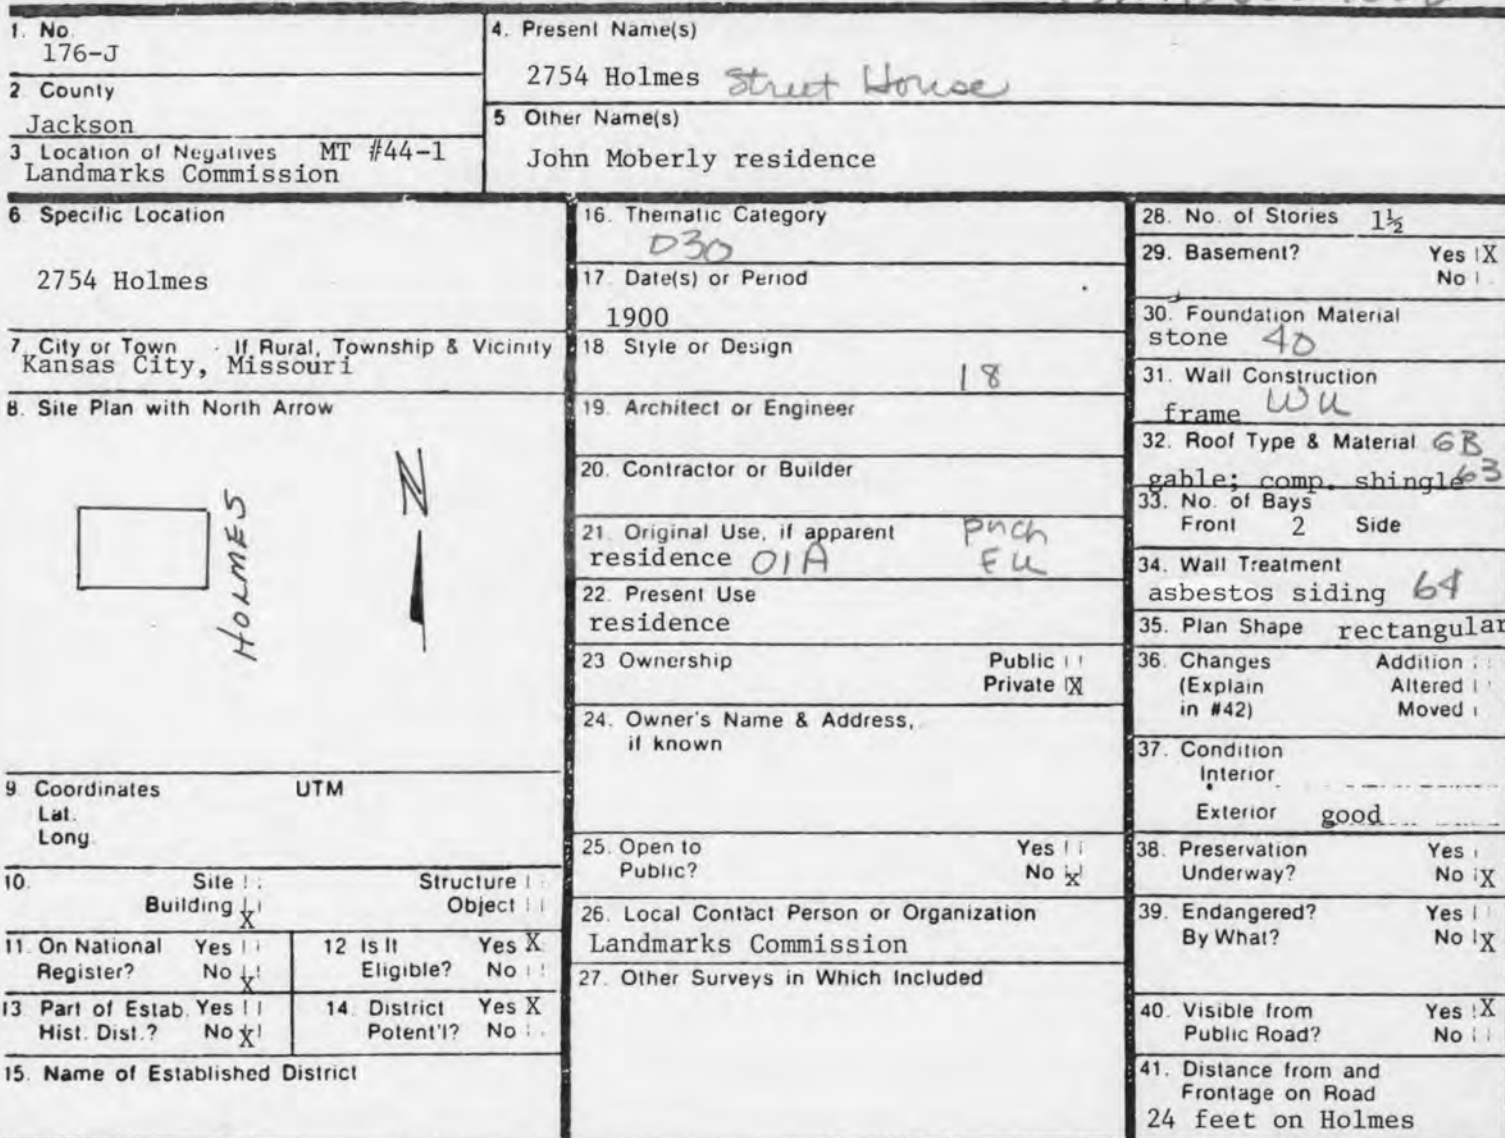 1. No.
176-J
2. County
Jackson
3. Location of Negatives MT #44-1
Landmarks Commission
4. Present Name(s)
2754 Holmes Street House
5 Other Name(s)
John Moberly residence
6. Specific Location
2754 Holmes
7. City or Town If Rural, Township & Vicinity
Kansas City, Missouri
8. Site Plan with North Arrow
N
HOLMES
9. Coordinates UTM
Lat.
Long.
10. Site Structure
Building X Object
11. On National Yes
Register? No X
12 Is It Yes X
Eligible? No
13. Part of Estab. Yes
Hist. Dist.? No X
14. District Yes X
Potent'l? No
15. Name of Established District
16. Thematic Category
030
17. Date(s) or Period
1900
18. Style or Design
18
19. Architect or Engineer
20. Contractor or Builder
21. Original Use, if apparent
residence 01A
Pnch
EU
22. Present Use
residence
23 Ownership Public
Private X
24. Owner's Name & Address,
if known
25. Open to Yes
Public? No X
26. Local Contact Person or Organization
Landmarks Commission
27. Other Surveys in Which Included
28. No. of Stories 1½
29. Basement? Yes X
No
30. Foundation Material
stone 40
31. Wall Construction
frame WU
32. Roof Type & Material GB
gable; comp. shingle 63
33. No. of Bays
Front 2 Side
34. Wall Treatment
asbestos siding 64
35. Plan Shape rectangular
36. Changes Addition
(Explain Altered
in #42) Moved
37. Condition
Interior
Exterior good
38. Preservation Yes
Underway? No X
39. Endangered? Yes
By What? No X
40. Visible from Yes X
Public Road? No
41. Distance from and
Frontage on Road
24 feet on Holmes